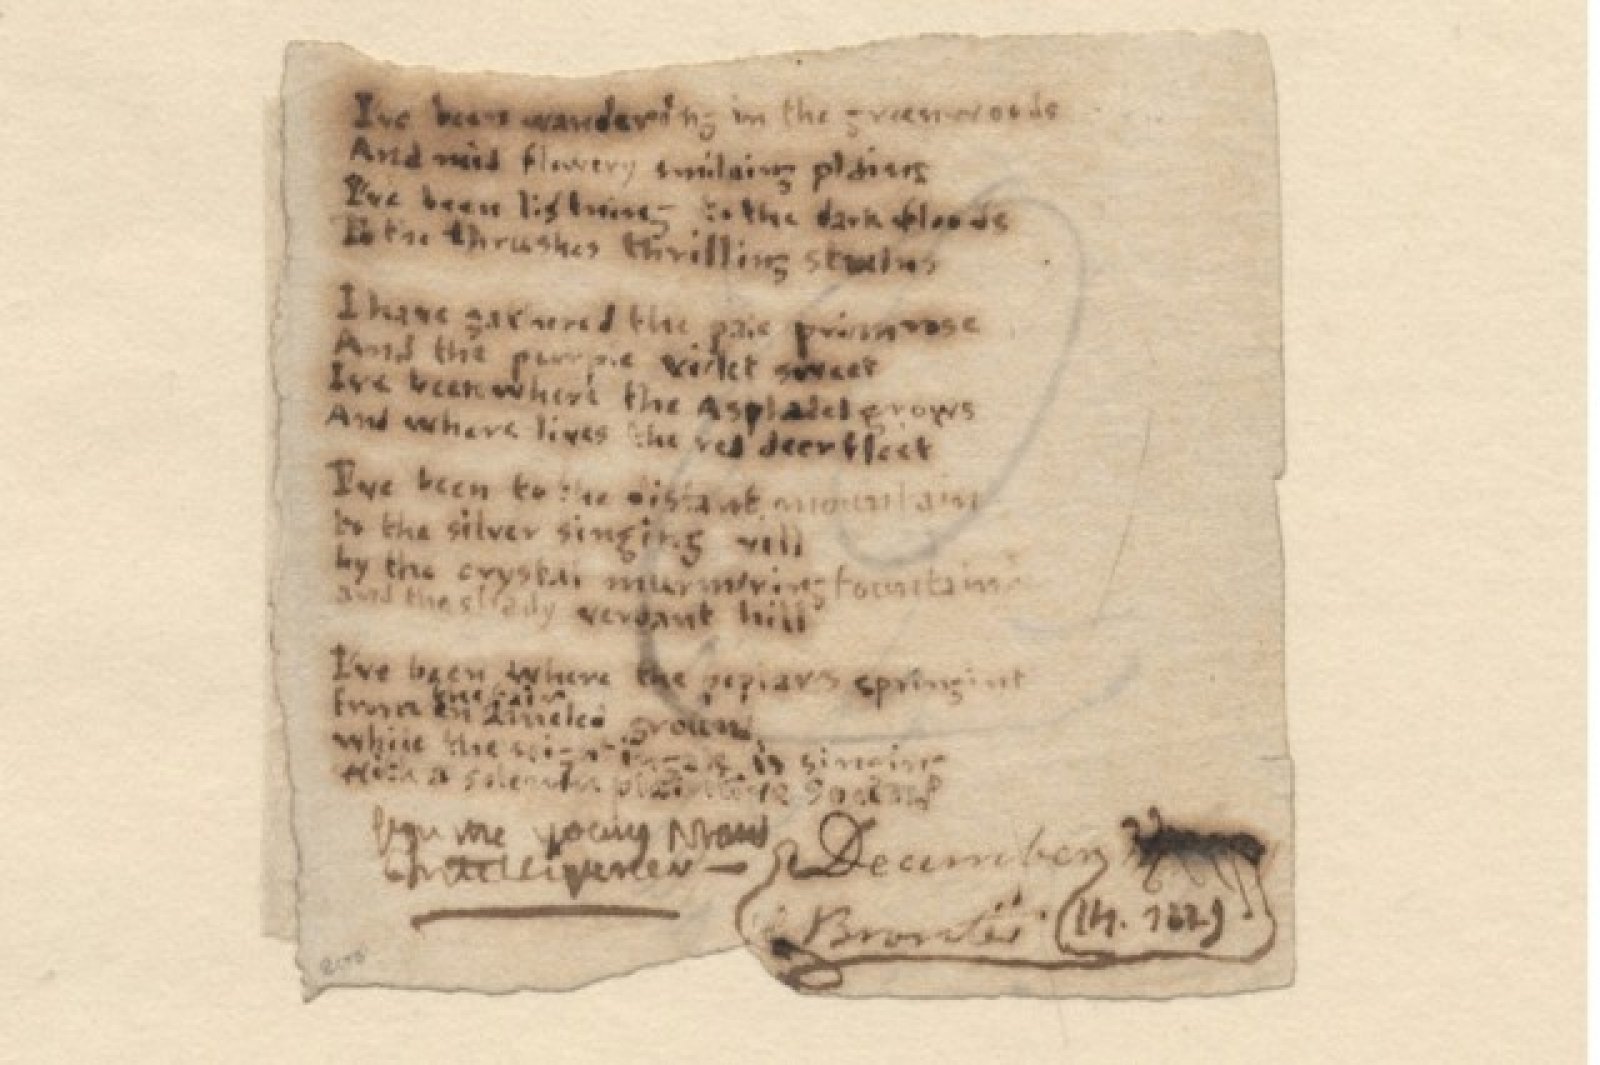 I've been wandering in the greenwoods
And mid flowery smilaing plains
I've been listning to the dark floods
To the thrushes thrilling strains
I have gathered the pale primrose
And the purple violet sweet
I've been where the Asphadel grows
And where lives the red deer fleet
I've been to the distant mountain
to the silver singing rill
by the crystal murmuring fountain
and the shady verdant hill
I've been where the poplar's springing
the fair
from en inneled ground
while the nightingale is singing
with a solemn plaintive sound
you
young
December
Brontë 14. 1829